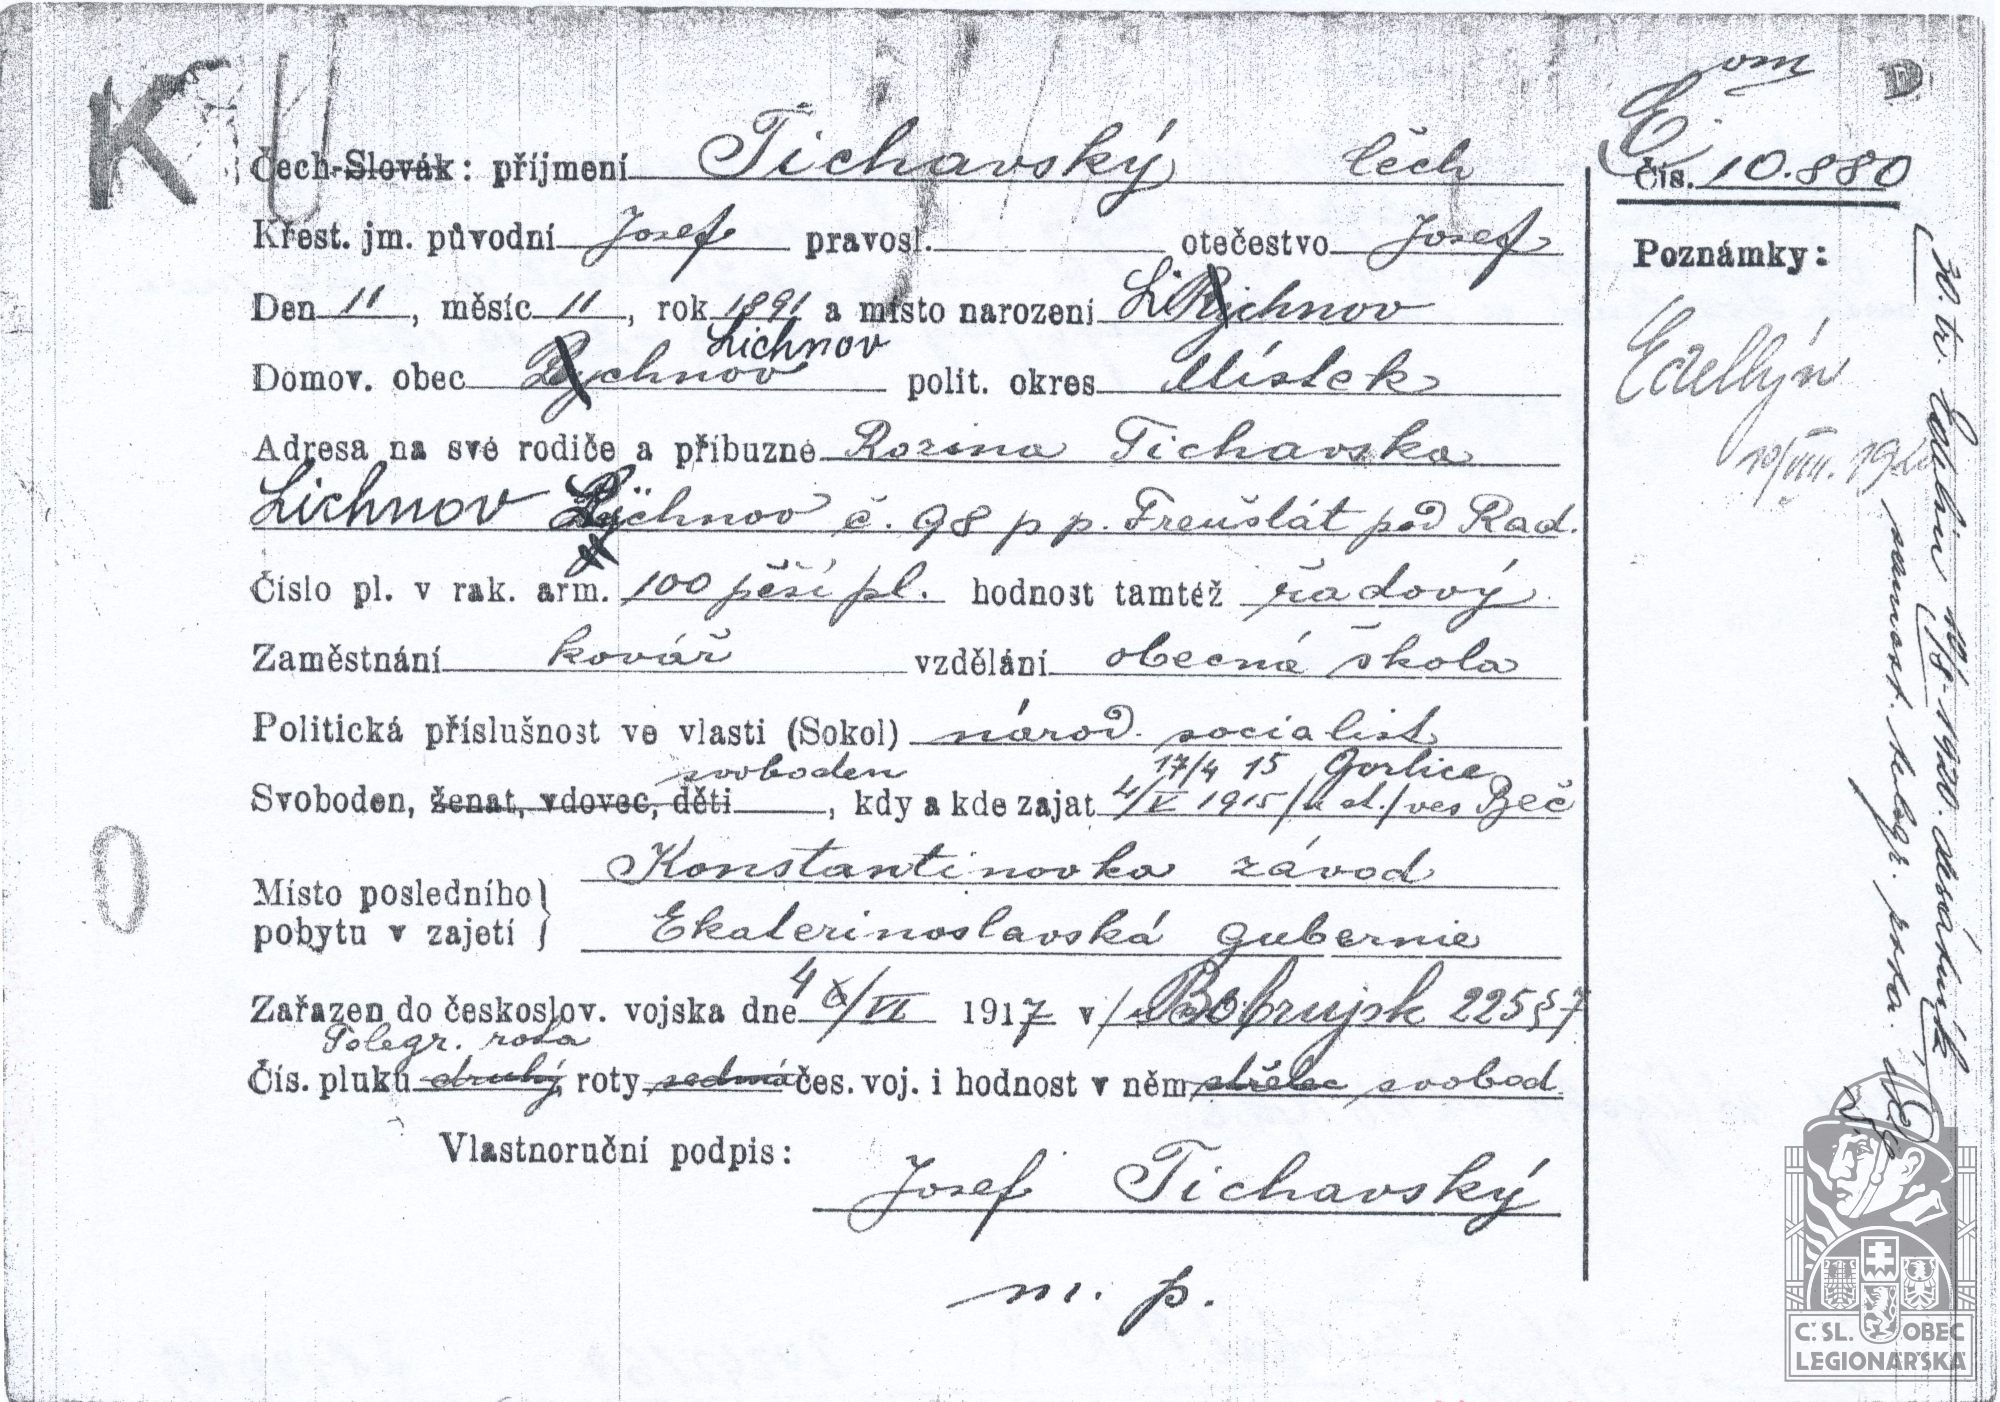 K U
om
E
Čech-Slovák: příjmení Tichavský čech
Čís. 10.880
Křest. jm. původní Josef pravosl. otečestvo Josef
Poznámky:
Den 11, měsíc 11, rok 1891 a místo narození LiRychnov
Lichnov
Domov. obec Rychnov polit. okres Místek
Adresa na své rodiče a příbuzné Rozina Tichavska
Lichnov Rychnov č. 98 p p. Freuštát pod Rad.
Číslo pl. v rak. arm. 100 pěší pl. hodnost tamtéž řadový
Zaměstnání kovář vzdělání obecná škola
Politická příslušnost ve vlasti (Sokol) národ. socialist
svoboden 17/4 15 Gorlice
Svoboden, ženat, vdovec, děti, kdy a kde zajat 4/V 1915 /u st./ ves Beč
Konstantinovka závod
Místo posledního
pobytu v zajetí
Ekaterinoslavská gubernie
4
Zařazen do českoslov. vojska dne 6/VI 1917 v Bobrujsk 225 § 7
Telegr. rota
Čís. pluku druhý, roty sedmá čes. voj. i hodnost v něm střelec svobod.
Vlastnoruční podpis:
Josef Tichavský
m. p.
30. tr. 1920. desátník
samost. telegr. rota.
Č. SL. OBEC
LEGIONÁŘSKÁ